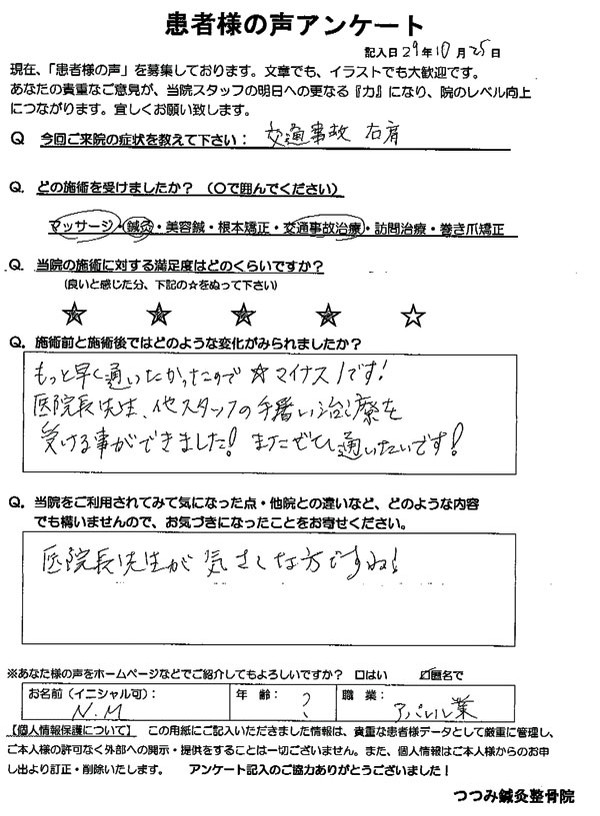 患者様の声アンケート
記入日29年10月25日
現在、「患者様の声」を募集しております。文章でも、イラストでも大歓迎です。
あなたの貴重なご意見が、当院スタッフの明日への更なる『力』になり、院のレベル向上
につながります。宜しくお願い致します。
Q 今回ご来院の症状を教えて下さい： 交通事故 右肩
Q. どの施術を受けましたか？（○で囲んでください）
マッサージ・鍼灸・美容鍼・根本矯正・交通事故治療・訪問治療・巻き爪矯正
Q. 当院の施術に対する満足度はどのくらいですか？
（良いと感じた分、下記の☆をぬって下さい）
★ ★ ★ ★ ☆
Q. 施術前と施術後ではどのような変化がみられましたか？
もっと早く通いたかったので☆マイナス1です！
医院長先生、他スタッフの手暑い治療を
受ける事ができました！またぜひ通いたいです！
Q. 当院をご利用されてみて気になった点・他院との違いなど、どのような内容
でも構いませんので、お気づきになったことをお寄せください。
医院長先生が気さくな方ですね！
※あなた様の声をホームページなどでご紹介してもよろしいですか？ □はい ☑匿名で
お名前（イニシャル可）： N.M 年 齢： ? 職 業： アパレル業
【個人情報保護について】 この用紙にご記入いただきました情報は、貴重な患者様データとして厳重に管理し、
ご本人様の許可なく外部への開示・提供をすることは一切ございません。また、個人情報はご本人様からのお申
し出より訂正・削除いたします。 アンケート記入のご協力ありがとうございました！
つつみ鍼灸整骨院